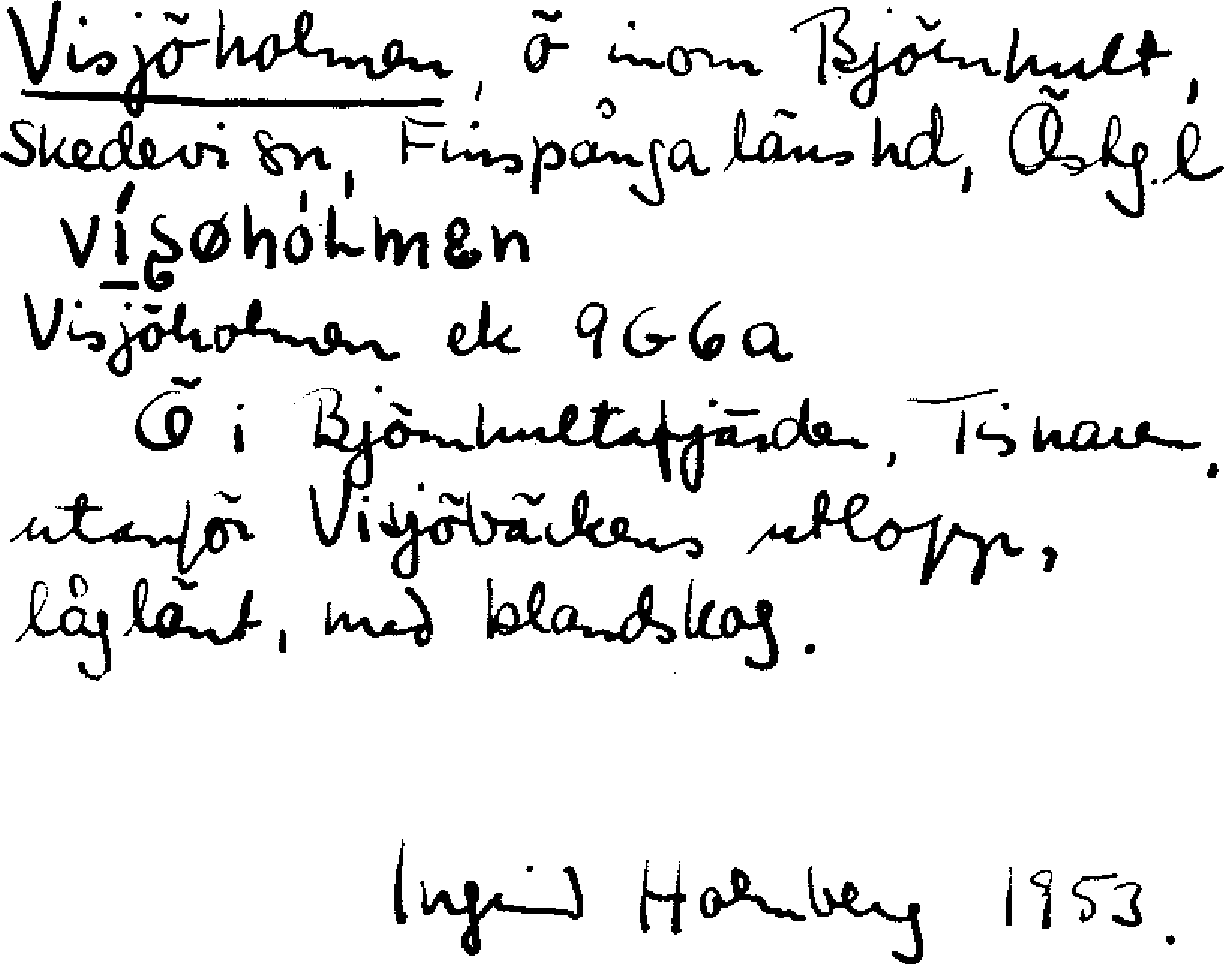 Visjöholmen, ö inom Björnhult,
Skedevi sn, Finspånga läns hd, Östg. l
Visjöholmen ek 9G6a
Ö i Björnhultafjärden, Tisnaren,
utanför Visjöbäckens utlopp,
låglänt, med blandskog.
Ingrid Holmberg 1953.